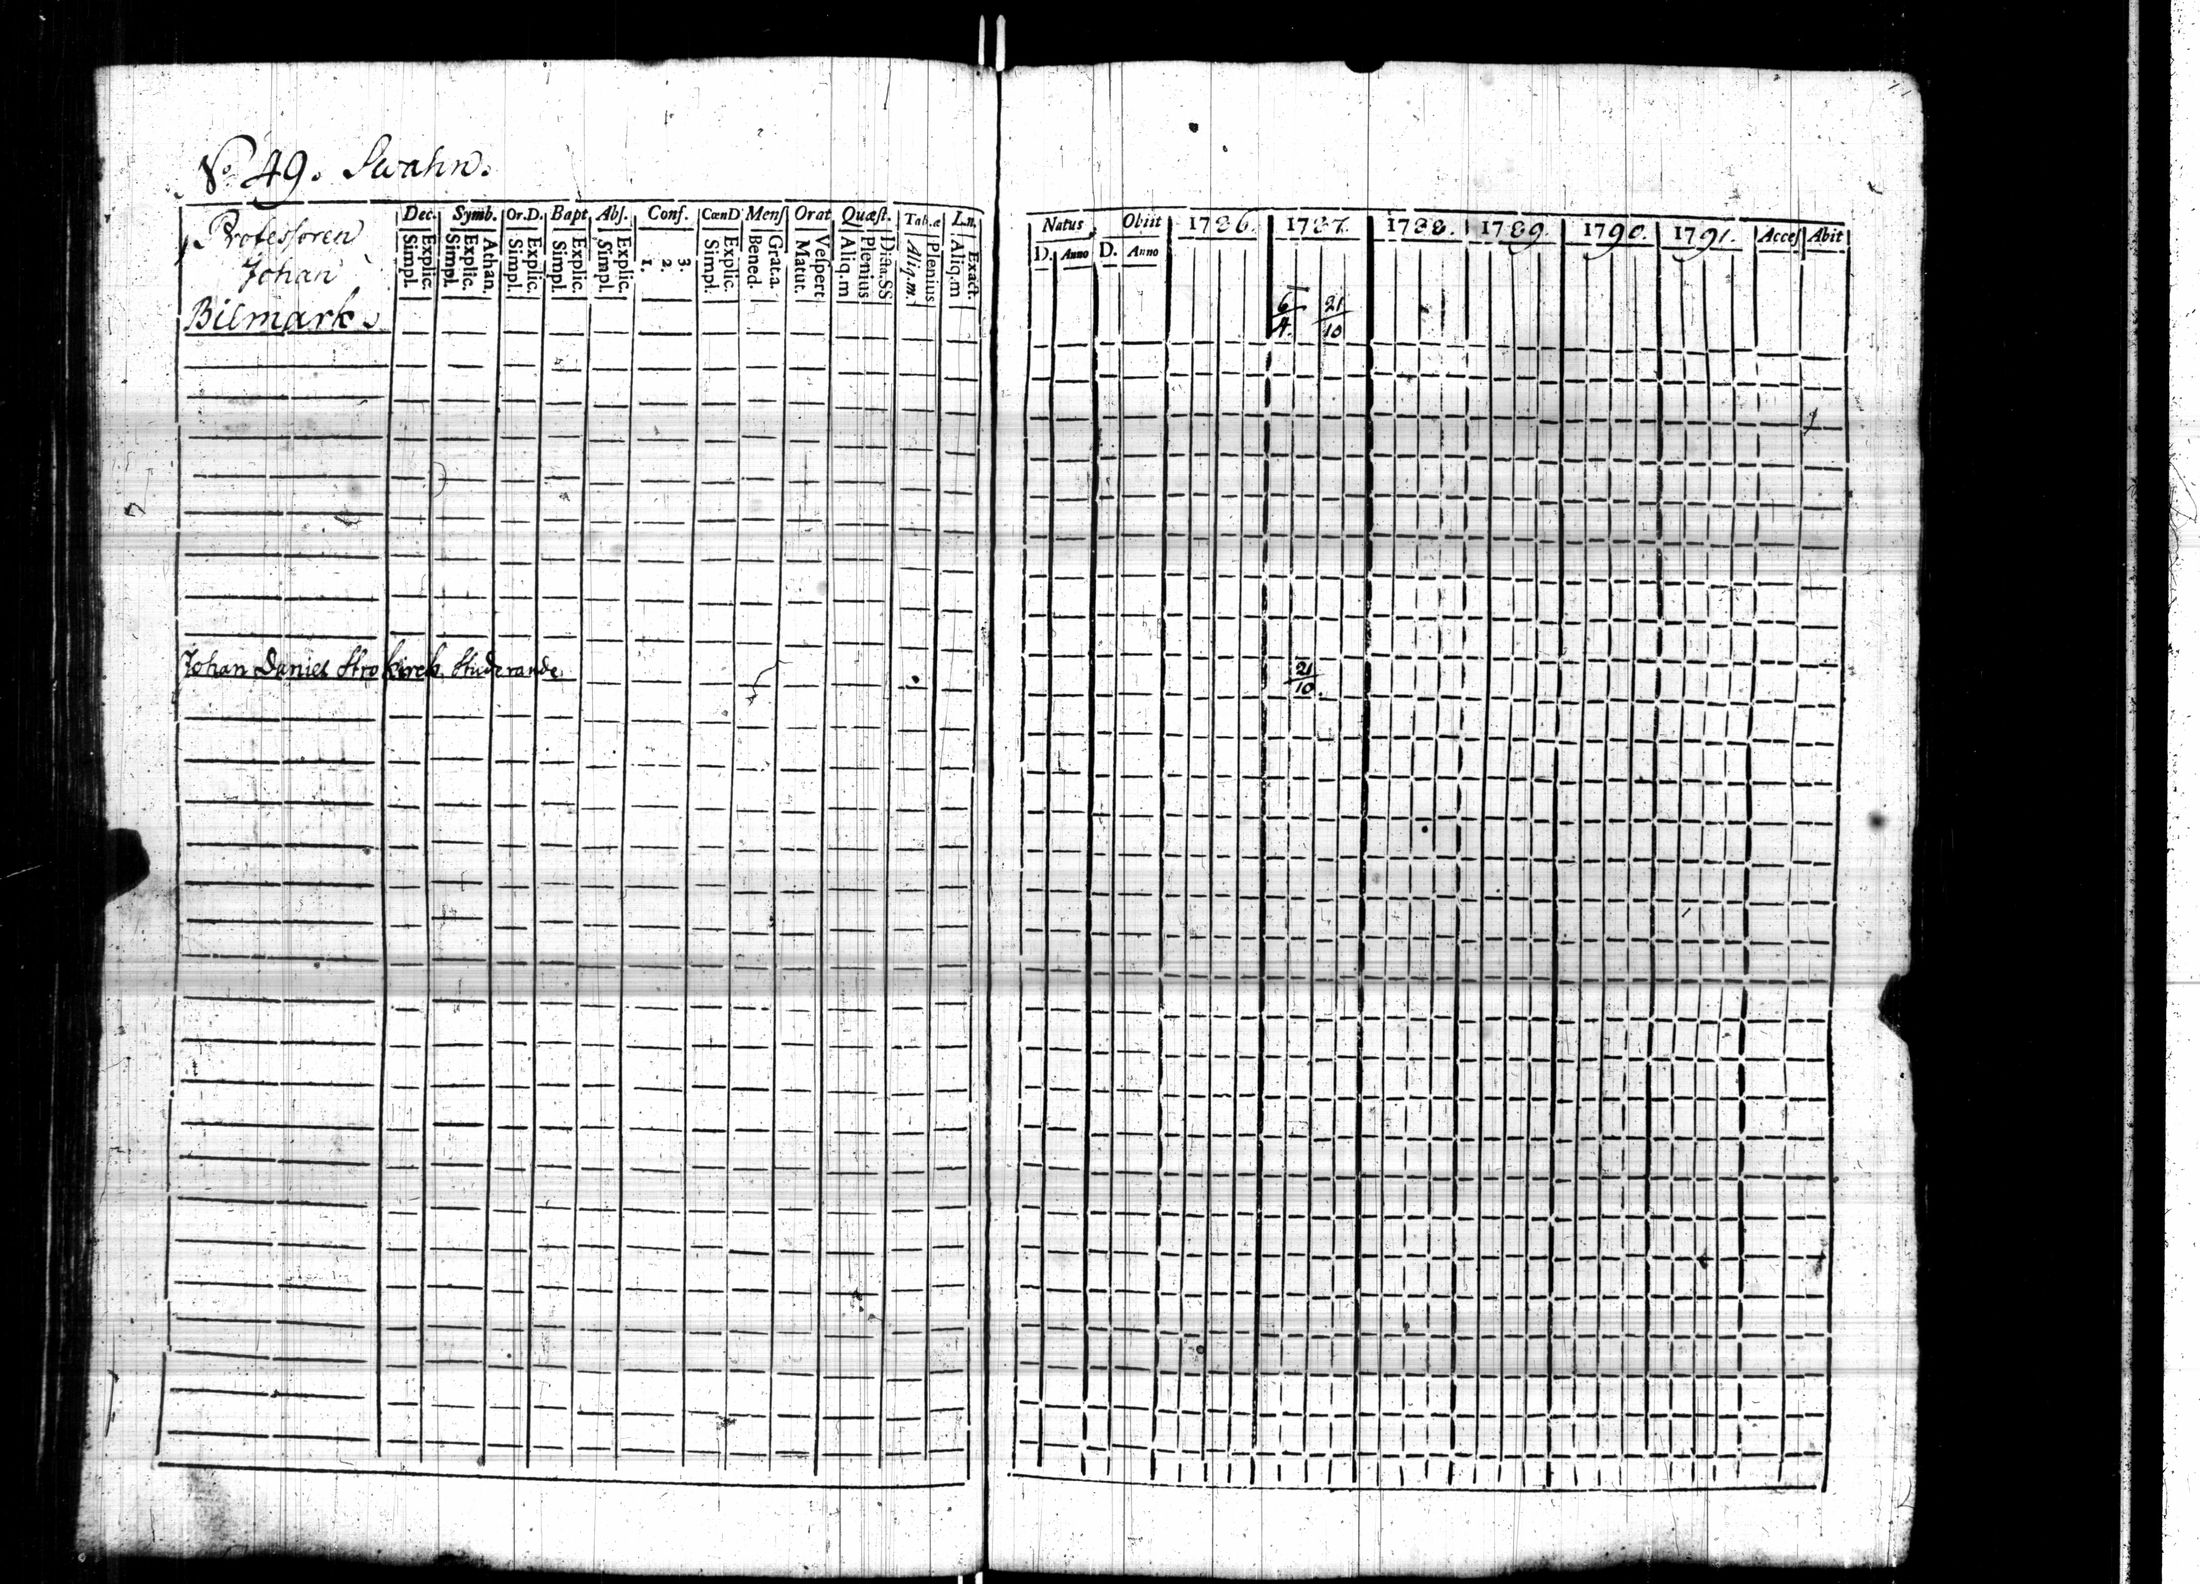 No 49. Swahn.
Professoren
Johan
Bilmark
Dec. Symb. Or.D. Bapt. Abs. Conf. CœnD Mens Orat Quæst. Tab.æ
Simpl. Explic. Simpl. Explic. Athan. Simpl. Explic. Simpl. Explic. Simpl. Explic. 1. 2. 3. Simpl. Explic. Bened. Grat.a. Matut. Vespert Aliq.m Plenius Dicta.SS Aliq.m. Plenius Aliq.m Exact.
Johan Daniel Studerande
Natus Obiit 1786. 1787. 1788. 1789. 1790. 1791. Acces Abit
D. Anno D. Anno
6/4. 21/10
21/10.